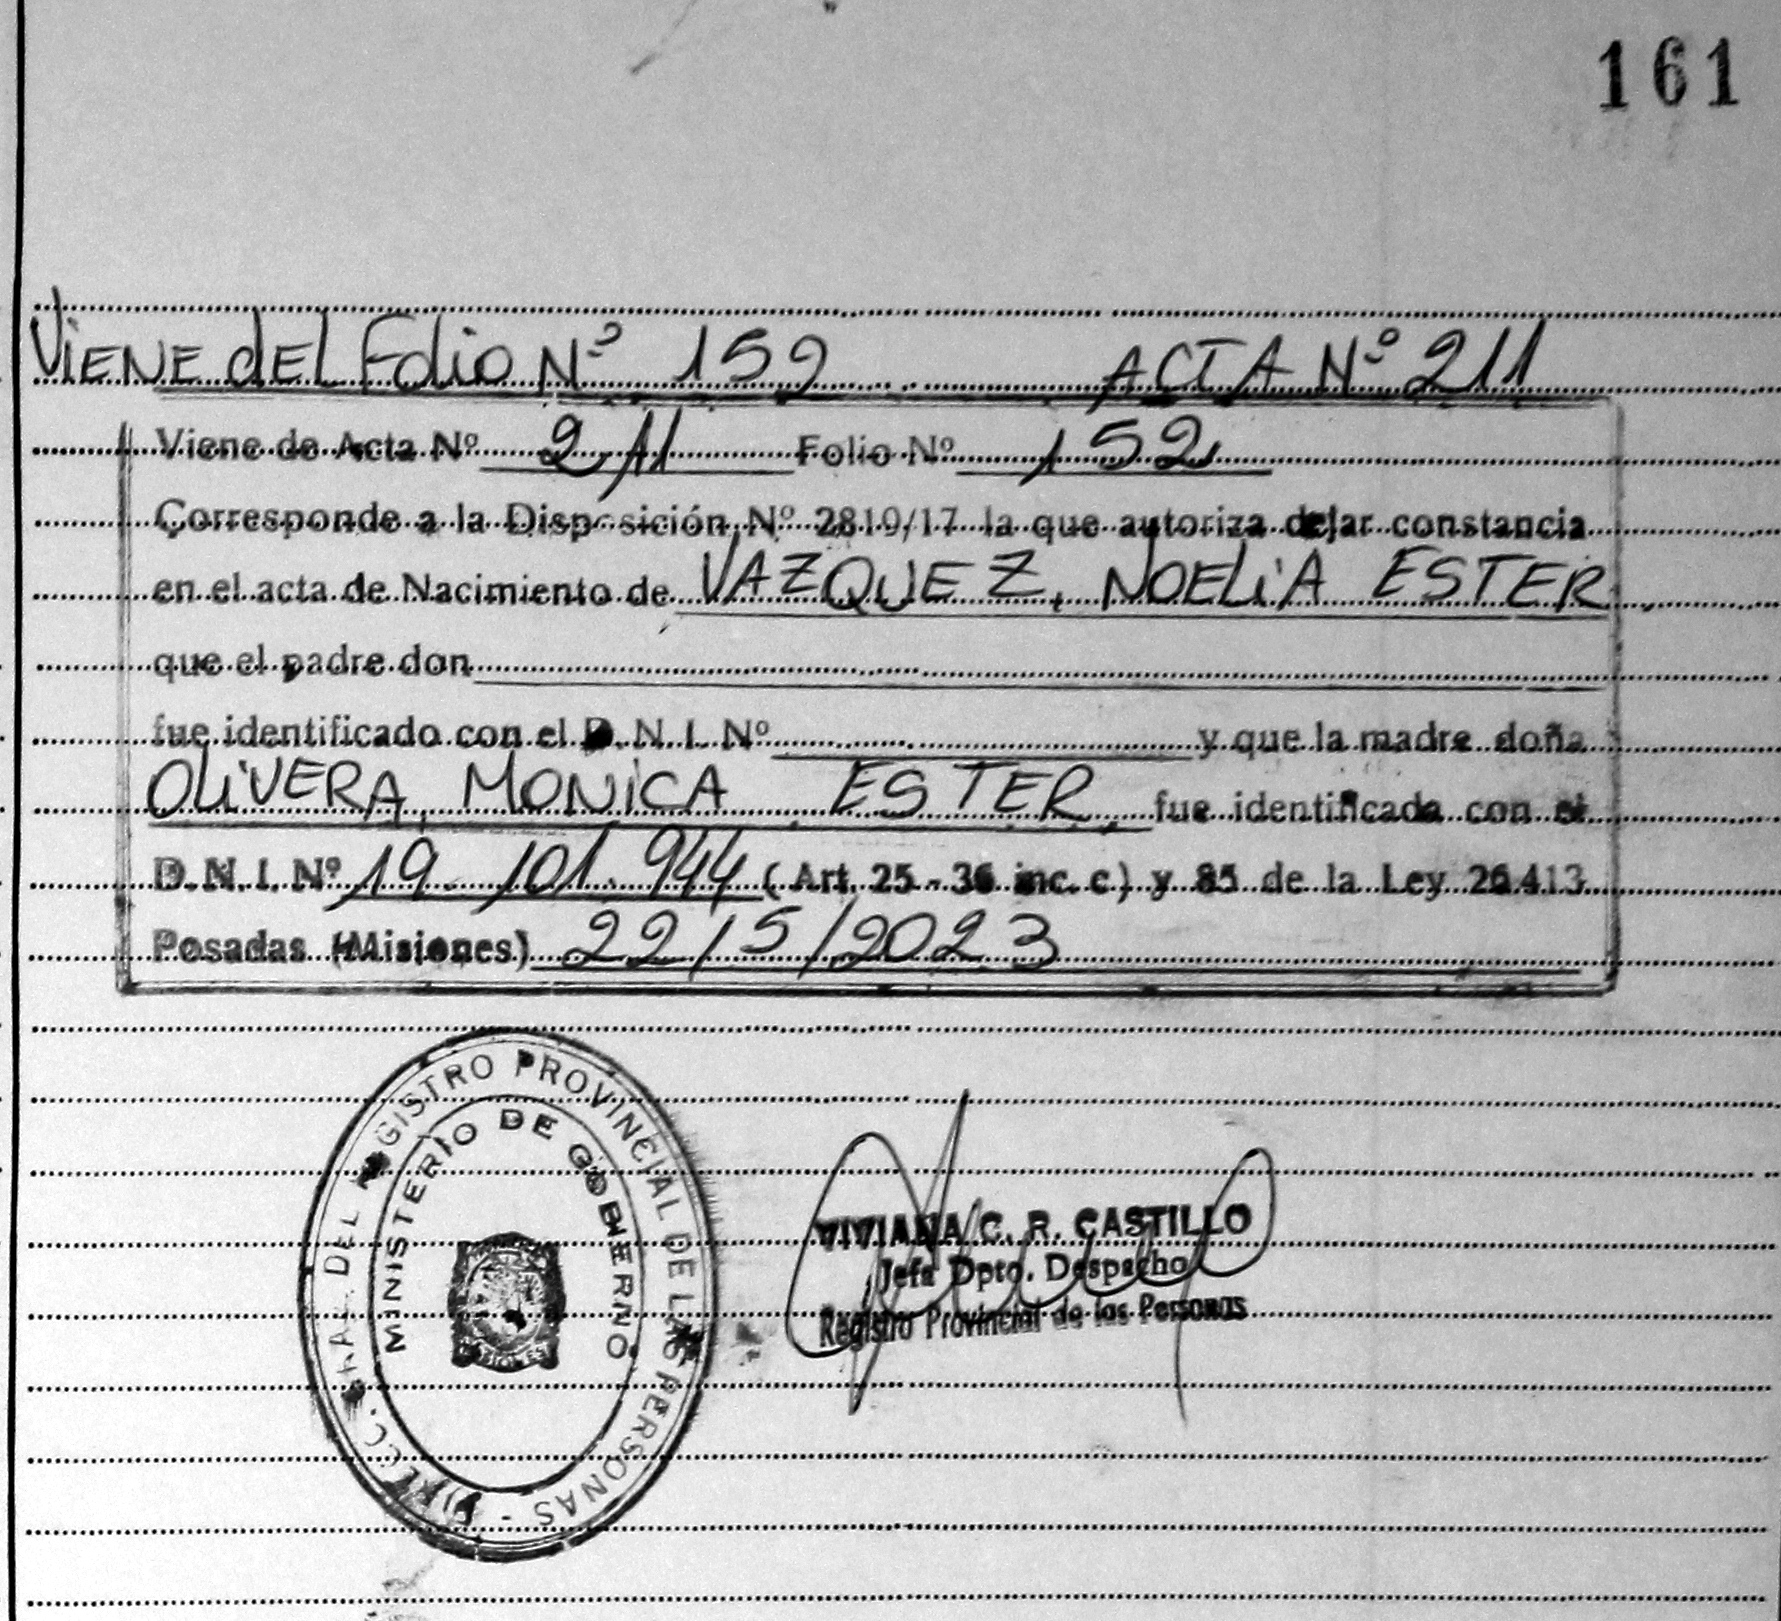 161
Viene del Folio Nº 152 ACTA Nº 211
Viene de Acta Nº 211 Folio Nº 152
Corresponde a la Disposición Nº 2819/17 la que autoriza dejar constancia
en el acta de Nacimiento de VAZQUEZ, NOELIA ESTER
que el padre don
fue identificado con el D. N. I. Nº y que la madre doña
OLIVERA, MONICA ESTER, fue identificada con el
D. N. I. Nº 19.101.944 (Art. 25 - 36 inc. c) y 85 de la Ley 26.413
Posadas (Misiones) 22/5/2023
DIRECC. GRAL. DEL REGISTRO PROVINCIAL DE LAS PERSONAS -
MINISTERIO DE GOBIERNO
MISIONES
VIVIANA C. R. CASTILLO
Jefa Dpto. Despacho
Registro Provincial de las Personas